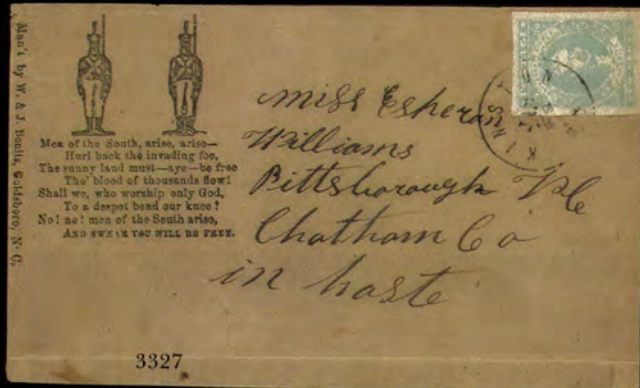 Man'f by W. & J. Bonitz, Goldsboro, N. C.
Men of the South, arise, arise—
Hurl back the invading foe,
The sunny land must—aye—be free
Tho' blood of thousands flow!
Shall we, who worship only God,
To a despot bend our knee?
No! no! men of the South arise,
AND SWEAR YOU WILL BE FREE.
KINST
Miss Esheran
Williams
Pittsborough NC
Chatham Co
in haste
3327